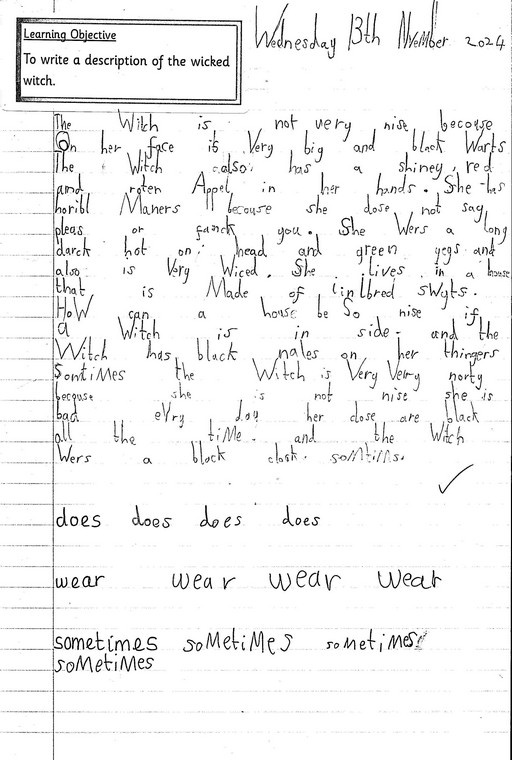 Learning Objective
To write a description of the wicked
witch.
Wednesday 13th November 2024
The Witch is not very nise becouse
On her face is Very big and black Warts
The Witch also has a shiney red
and roten Appel in her hands. She has
horibl Maners because she dose not say
pleas or fanck you. She Wers a long
darck hot on head and green yegs and
also is Very Wiced. She lives in a house
that is Made of linlbred swyts.
HoW can a house be So nise if
a Witch is in side. and the
Witch has black nales on her thingers
SontiMes the Witch is Very Very norty
because she is not nise she is
bad eVry day her close are black
all the tiMe. and the Witch
Wers a black cloak. soMtiMs.
does does does does
wear wear wear wear
sometimes soMetiMes sometimes
soMetiMes